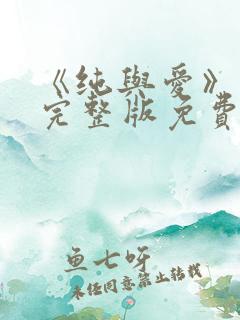 《纯與愛》
完整版免費
鱼七呀
未经同意禁止转载